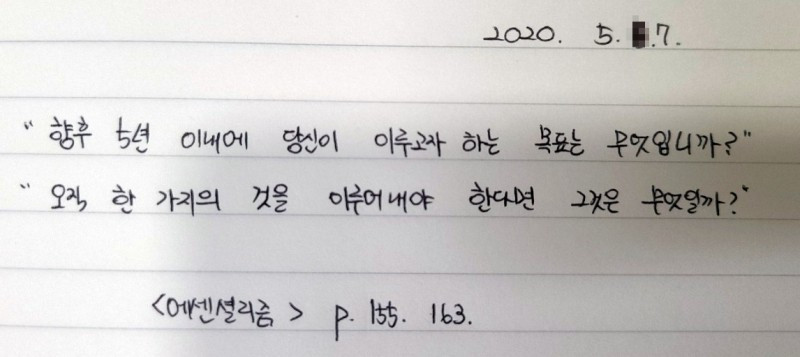 2020. 5. .7.
"향후 5년 이내에 당신이 이루고자 하는 목표는 무엇입니까?"
"오직 한 가지의 것을 이루어내야 한다면 그것은 무엇일까?"
<에센셜리즘> p. 155. 163.